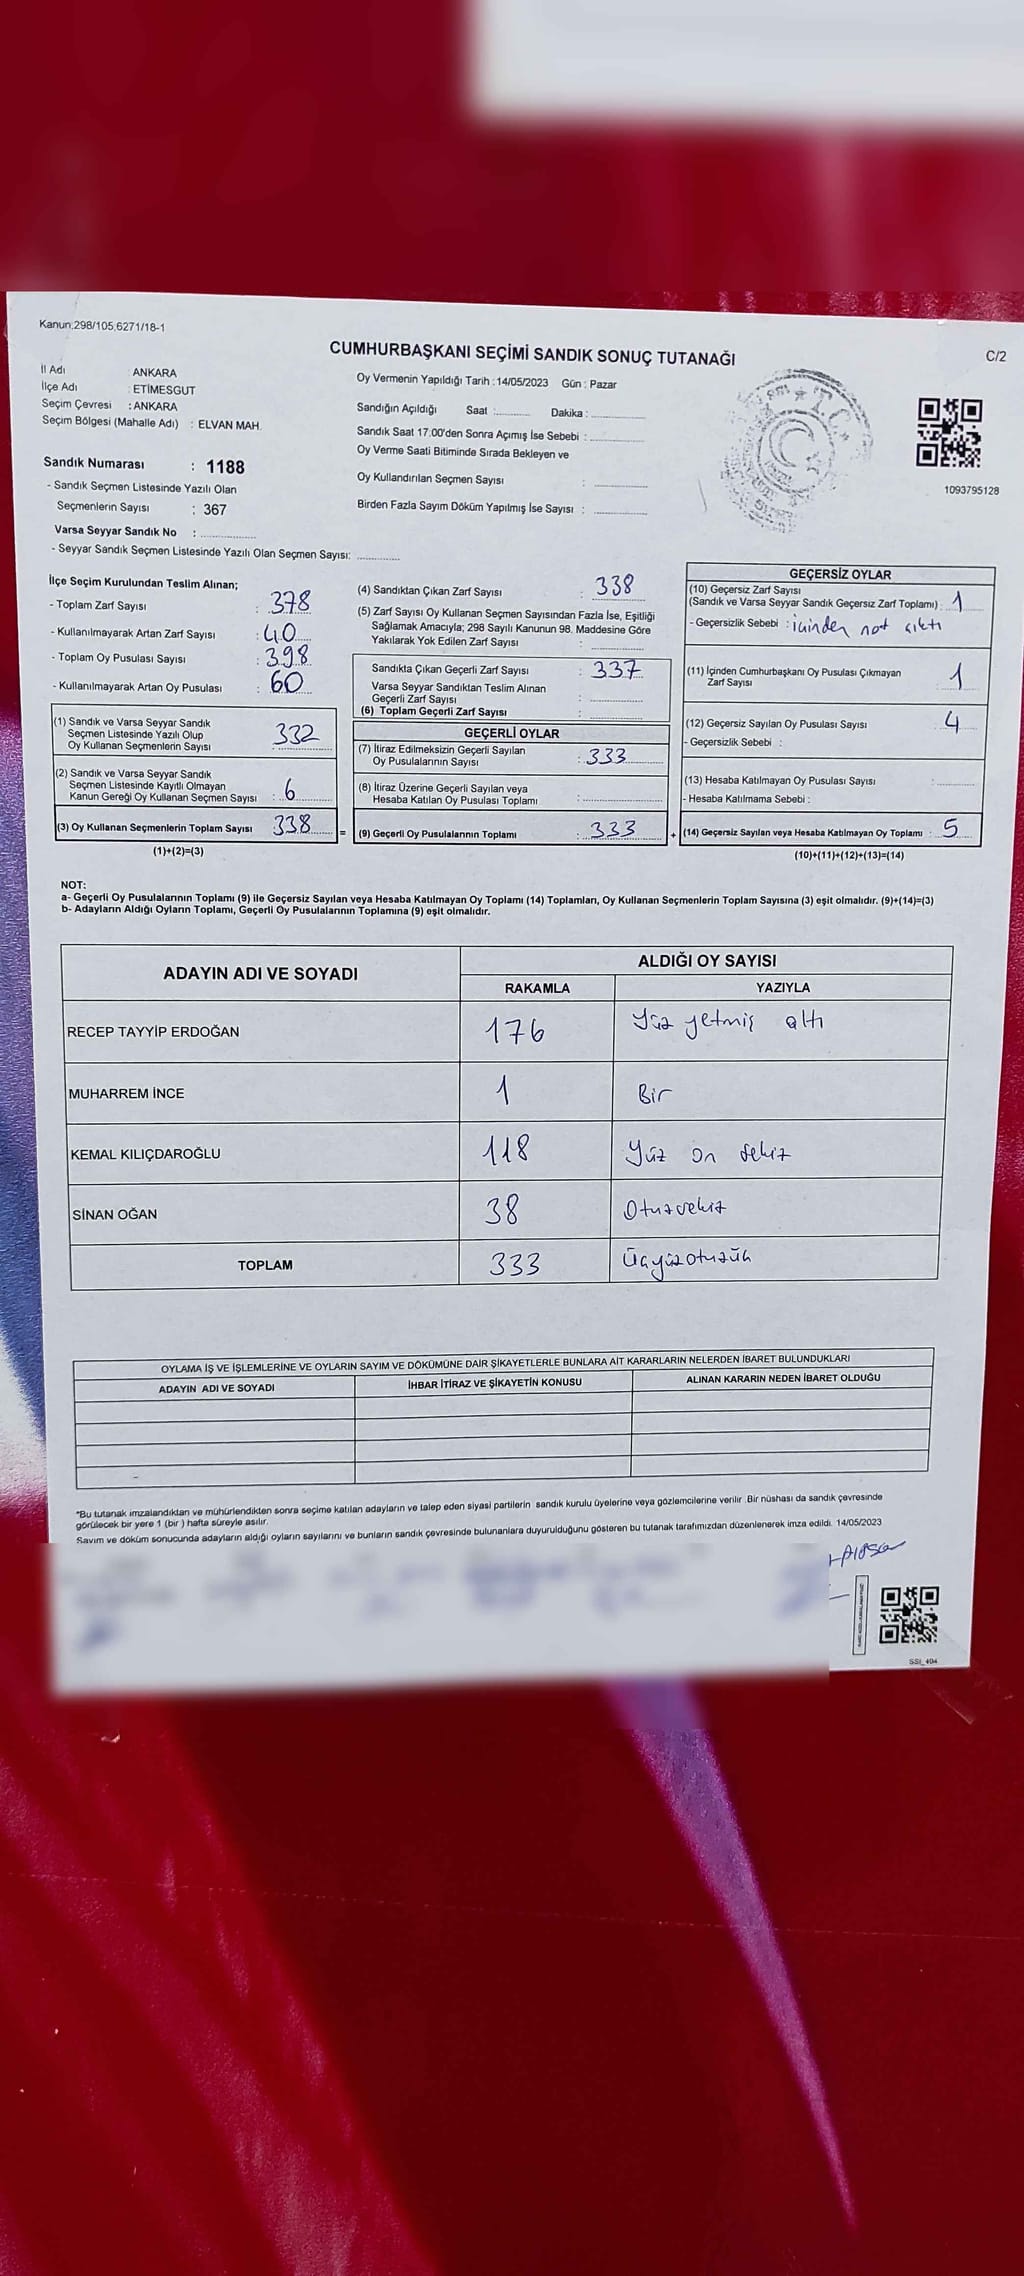 Kanun;298/105,6271/18-1
CUMHURBAŞKANI SEÇİMİ SANDIK SONUÇ TUTANAĞI
C/2
İl Adı : ANKARA
İlçe Adı : ETİMESGUT
Seçim Çevresi : ANKARA
Seçim Bölgesi (Mahalle Adı) : ELVAN MAH.
Sandık Numarası : 1188
- Sandık Seçmen Listesinde Yazılı Olan
Seçmenlerin Sayısı : 367
Varsa Seyyar Sandık No :
- Seyyar Sandık Seçmen Listesinde Yazılı Olan Seçmen Sayısı:
Oy Vermenin Yapıldığı Tarih : 14/05/2023 Gün : Pazar
Sandığın Açıldığı Saat : Dakika :
Sandık Saat 17:00'den Sonra Açımış İse Sebebi :
Oy Verme Saati Bitiminde Sırada Bekleyen ve
Oy Kullandırılan Seçmen Sayısı :
Birden Fazla Sayım Döküm Yapılmış İse Sayısı :
T.C.
1093795128
İlçe Seçim Kurulundan Teslim Alınan;
- Toplam Zarf Sayısı : 378
- Kullanılmayarak Artan Zarf Sayısı : 40
- Toplam Oy Pusulası Sayısı : 398
- Kullanılmayarak Artan Oy Pusulası : 60
(1) Sandık ve Varsa Seyyar Sandık
Seçmen Listesinde Yazılı Olup
Oy Kullanan Seçmenlerin Sayısı : 332
(2) Sandık ve Varsa Seyyar Sandık
Seçmen Listesinde Kayıtlı Olmayan
Kanun Gereği Oy Kullanan Seçmen Sayısı : 6
(3) Oy Kullanan Seçmenlerin Toplam Sayısı : 338
(1)+(2)=(3)
(4) Sandıktan Çıkan Zarf Sayısı : 338
(5) Zarf Sayısı Oy Kullanan Seçmen Sayısından Fazla İse, Eşitliği
Sağlamak Amacıyla; 298 Sayılı Kanunun 98. Maddesine Göre
Yakılarak Yok Edilen Zarf Sayısı :
Sandıkta Çıkan Geçerli Zarf Sayısı : 337
Varsa Seyyar Sandıktan Teslim Alınan
Geçerli Zarf Sayısı :
(6) Toplam Geçerli Zarf Sayısı :
GEÇERLİ OYLAR
(7) İtiraz Edilmeksizin Geçerli Sayılan
Oy Pusulalarının Sayısı : 333
(8) İtiraz Üzerine Geçerli Sayılan veya
Hesaba Katılan Oy Pusulası Toplamı :
= (9) Geçerli Oy Pusulalarının Toplamı : 333
GEÇERSİZ OYLAR
(10) Geçersiz Zarf Sayısı
(Sandık ve Varsa Seyyar Sandık Geçersiz Zarf Toplamı) : 1
- Geçersizlik Sebebi : içinden not çıktı
(11) İçinden Cumhurbaşkanı Oy Pusulası Çıkmayan
Zarf Sayısı : 1
(12) Geçersiz Sayılan Oy Pusulası Sayısı : 4
- Geçersizlik Sebebi :
(13) Hesaba Katılmayan Oy Pusulası Sayısı :
- Hesaba Katılmama Sebebi :
+ (14) Geçersiz Sayılan veya Hesaba Katılmayan Oy Toplamı : 5
(10)+(11)+(12)+(13)=(14)
NOT:
a- Geçerli Oy Pusulalarının Toplamı (9) ile Geçersiz Sayılan veya Hesaba Katılmayan Oy Toplamı (14) Toplamları, Oy Kullanan Seçmenlerin Toplam Sayısına (3) eşit olmalıdır. (9)+(14)=(3)
b- Adayların Aldığı Oyların Toplamı, Geçerli Oy Pusulalarının Toplamına (9) eşit olmalıdır.
ADAYIN ADI VE SOYADI ALDIĞI OY SAYISI
RAKAMLA YAZIYLA
RECEP TAYYİP ERDOĞAN 176 Yüz yetmiş altı
MUHARREM İNCE 1 Bir
KEMAL KILIÇDAROĞLU 118 Yüz on sekiz
SİNAN OĞAN 38 Otuzsekiz
TOPLAM 333 Üçyüzotuzüç
OYLAMA İŞ VE İŞLEMLERİNE VE OYLARIN SAYIM VE DÖKÜMÜNE DAİR ŞİKAYETLERLE BUNLARA AİT KARARLARIN NELERDEN İBARET BULUNDUKLARI
ADAYIN ADI VE SOYADI İHBAR İTİRAZ VE ŞİKAYETİN KONUSU ALINAN KARARIN NEDEN İBARET OLDUĞU
*Bu tutanak imzalandıktan ve mühürlendikten sonra seçime katılan adayların ve talep eden siyasi partilerin sandık kurulu üyelerine veya gözlemcilerine verilir .Bir nüshası da sandık çevresinde
görülecek bir yere 1 (bir ) hafta süreyle asılır.
Sayım ve döküm sonucunda adayların aldığı oyların sayılarını ve bunların sandık çevresinde bulunanlara duyurulduğunu gösteren bu tutanak tarafımızdan düzenlenerek imza edildi. 14/05/2023
SSI_404